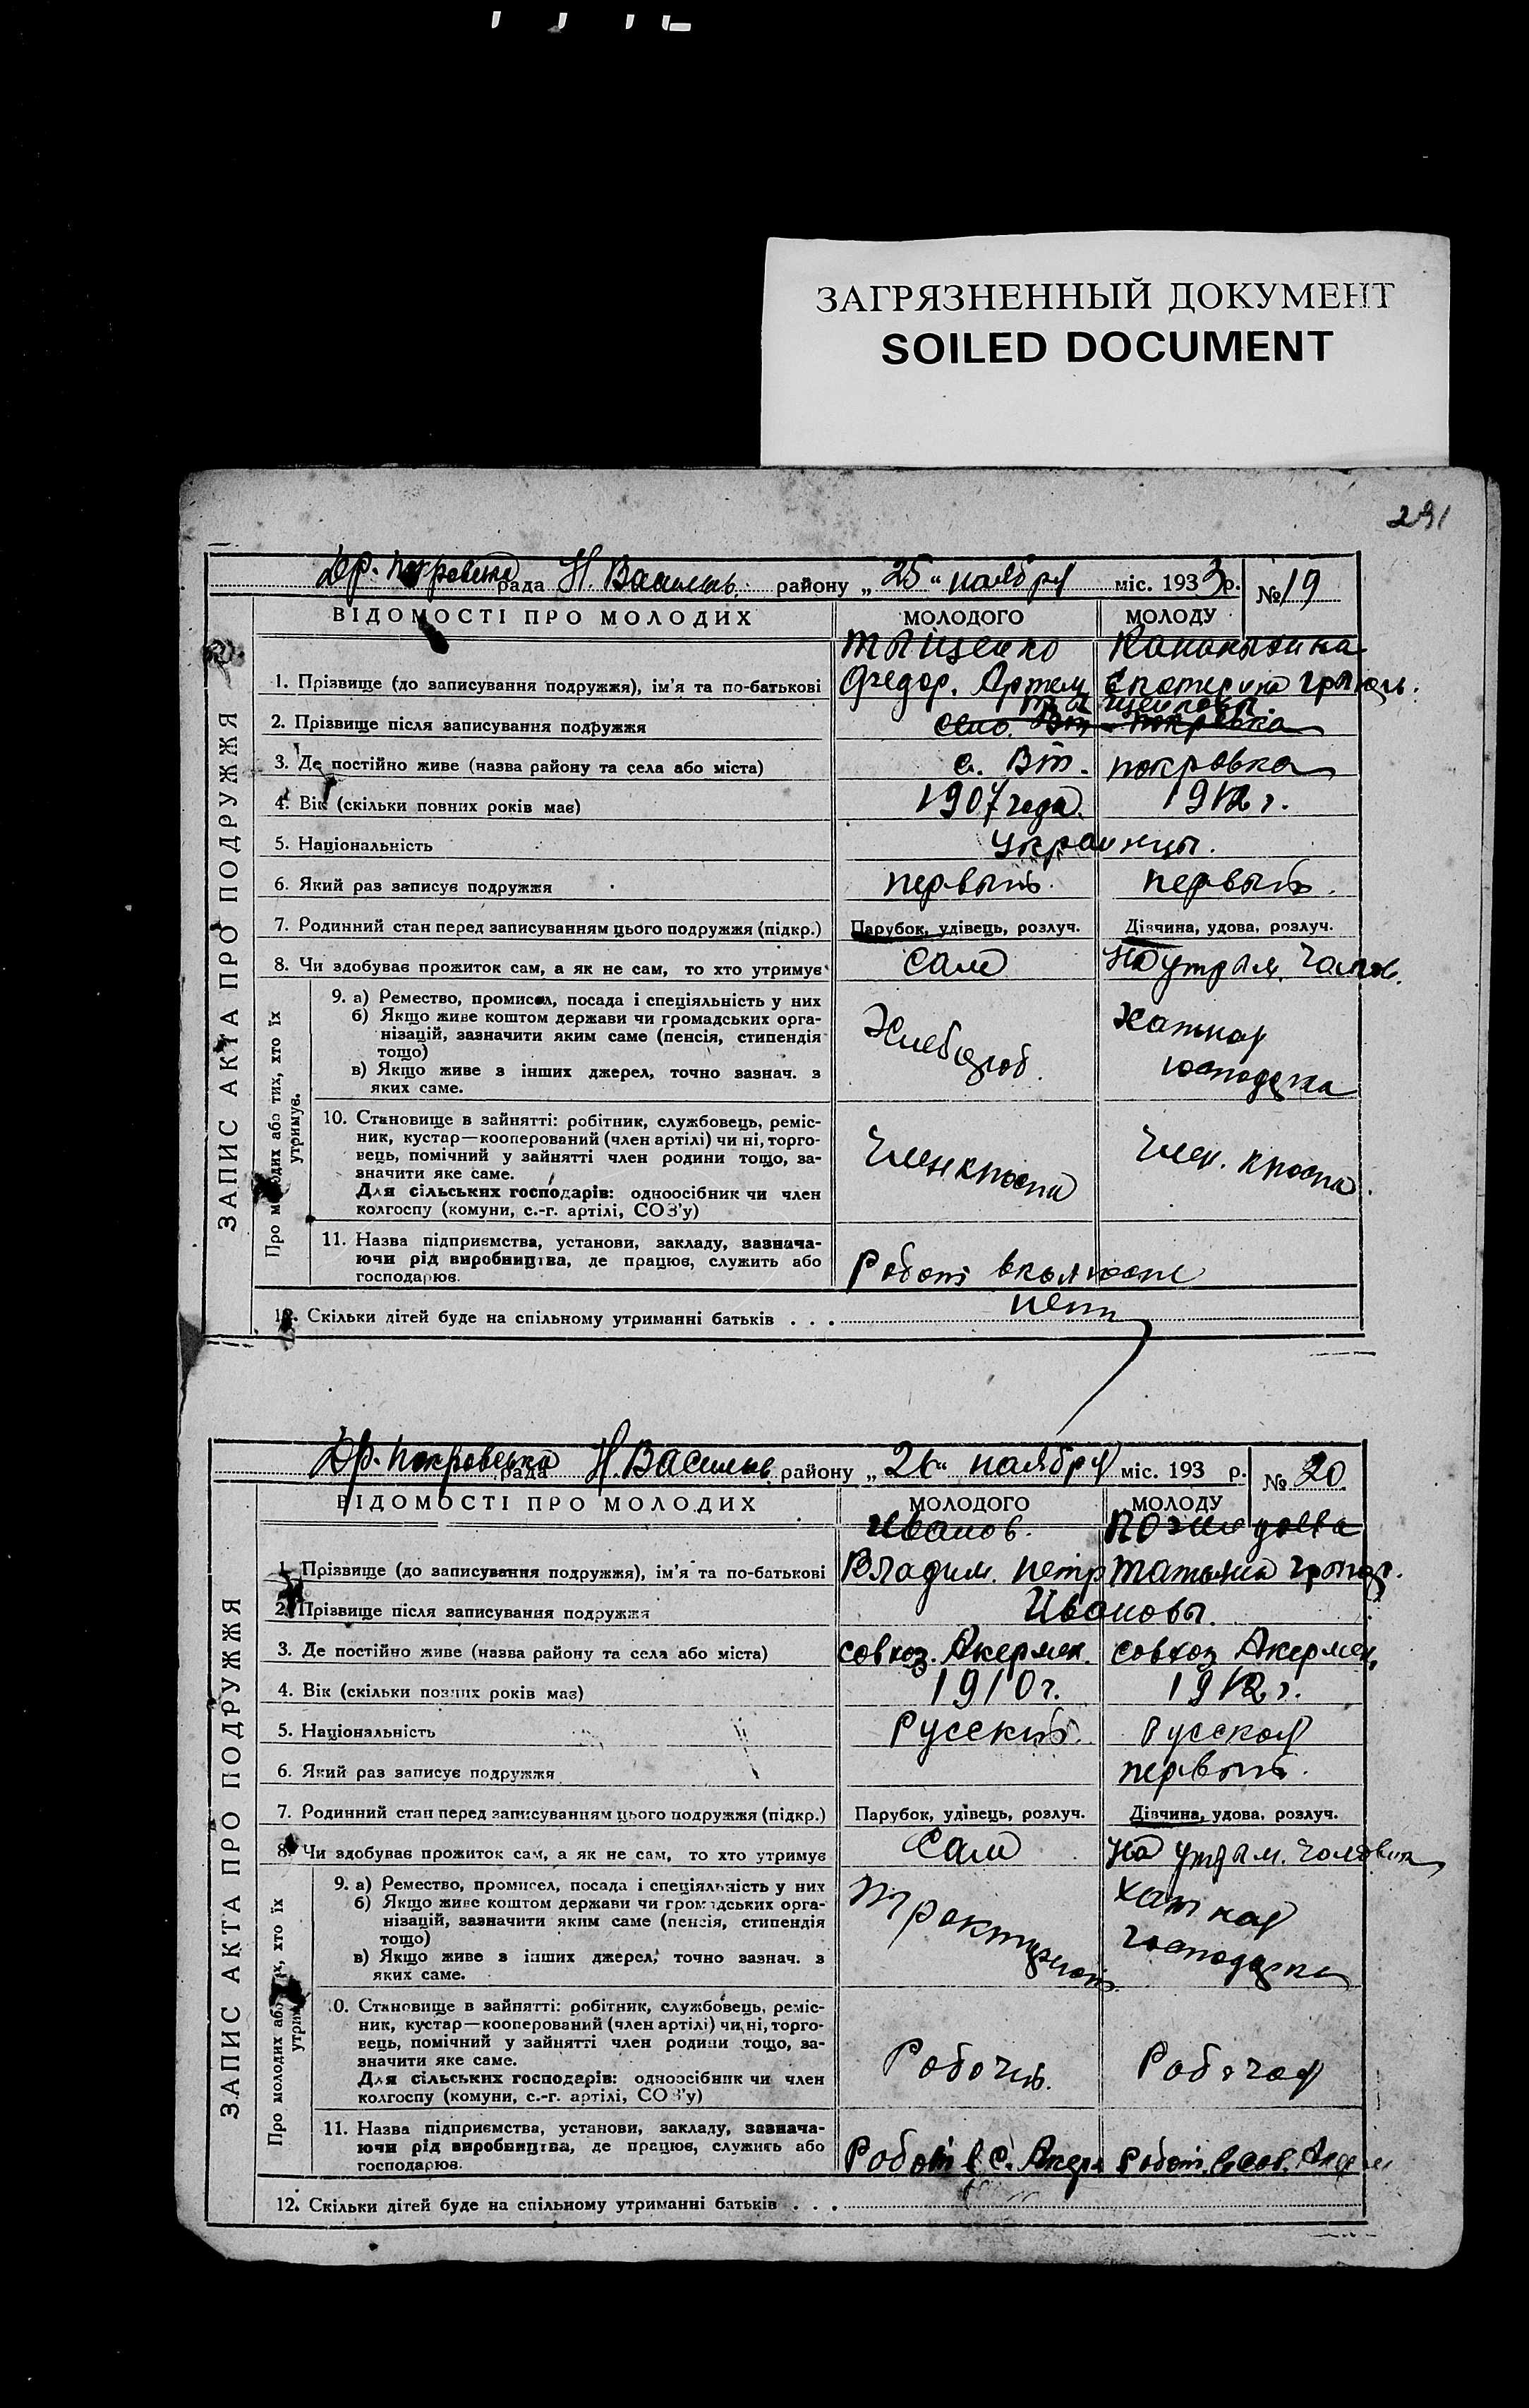 ЗАГРЯЗНЕННЫЙ ДОКУМЕНТ
SOILED DOCUMENT
291
Др. Покровська рада Н. Васильв. району „25“ ноября міс. 1933 р. № 19
ВІДОМОСТІ ПРО МОЛОДИХ МОЛОДОГО МОЛОДУ
ЗАПИС АКТА ПРО ПОДРУЖЖЯ
1. Прізвище (до записування подружжя), ім'я та по-батькові Федор. Артем Екатерина
2. Прізвище після записування подружжя
3. Де постійно живе (назва району та села або міста) с. Вт. Покровка
4. Вік (скільки повних років має) 1907 года. 1912 г.
5. Національність Украинцы.
6. Який раз записує подружжя первый. первый.
7. Родинний стан перед записуванням цього подружжя (підкр.) Парубок, удівець, розлуч. Дівчина, удова, розлуч.
8. Чи здобуває прожиток сам, а як не сам, то хто утримує Сам На утрым. Чолов.
Про молодих або тих, хто їх утримує.
9. а) Ремество, промисел, посада і спеціяльність у них
б) Якщо живе коштом держави чи громадських орга-
нізацій, зазначити яким саме (пенсія, стипендія
тощо)
в) Якщо живе з інших джерел, точно зазнач. з
яких саме.
Хлебороб. Хатняя
господарка
10. Становище в зайнятті: робітник, службовець, реміс-
ник, кустар—кооперований (член артілі) чи ні, торго-
вець, помічний у зайнятті член родини тощо, за-
значити яке саме.
Для сільських господарів: одноосібник чи член
колгоспу (комуни, с.-г. артілі, СОЗ'у)
11. Назва підприємства, установи, закладу, зазнача-
ючи рід виробництва, де працює, служить або
господарює.
Робот
12. Скільки дітей буде на спільному утриманні батьків . . . нет
Др. Покровська рада Н. Васильв. району „26“ ноября міс. 193 р. № 20
ВІДОМОСТІ ПРО МОЛОДИХ МОЛОДОГО МОЛОДУ
ЗАПИС АКТА ПРО ПОДРУЖЖЯ
Иванов.
1. Прізвище (до записування подружжя), ім'я та по-батькові Владим. Петр Татьяна Григор.
2. Прізвище після записування подружжя Ивановы.
3. Де постійно живе (назва району та села або міста) совхоз. Акермен. совхоз Акермен.
4. Вік (скільки повних років має) 1910 г. 1912 г.
5. Національність Русский. Русская
6. Який раз записує подружжя первый.
7. Родинний стан перед записуванням цього подружжя (підкр.) Парубок, удівець, розлуч. Дівчина, удова, розлуч.
8. Чи здобуває прожиток сам, а як не сам, то хто утримує Сам На утрым. Чоловика
Про молодих або тих, хто їх утримує
9. а) Ремество, промисел, посада і спеціяльність у них
б) Якщо живе коштом держави чи громадських орга-
нізацій, зазначити яким саме (пенсія, стипендія
тощо)
в) Якщо живе з інших джерел, точно зазнач. з
яких саме.
Хатняя
господарка
10. Становище в зайнятті: робітник, службовець, реміс-
ник, кустар—кооперований (член артілі) чи ні, торго-
вець, помічний у зайнятті член родини тощо, за-
значити яке саме.
Для сільських господарів: одноосібник чи член
колгоспу (комуни, с.-г. артілі, СОЗ'у)
Робочий. Робочая
11. Назва підприємства, установи, закладу, зазнача-
ючи рід виробництва, де працює, служить або
господарює.
Робот в с. Акерм Робот. в сов. Акерм
12. Скільки дітей буде на спільному утриманні батьків . . .